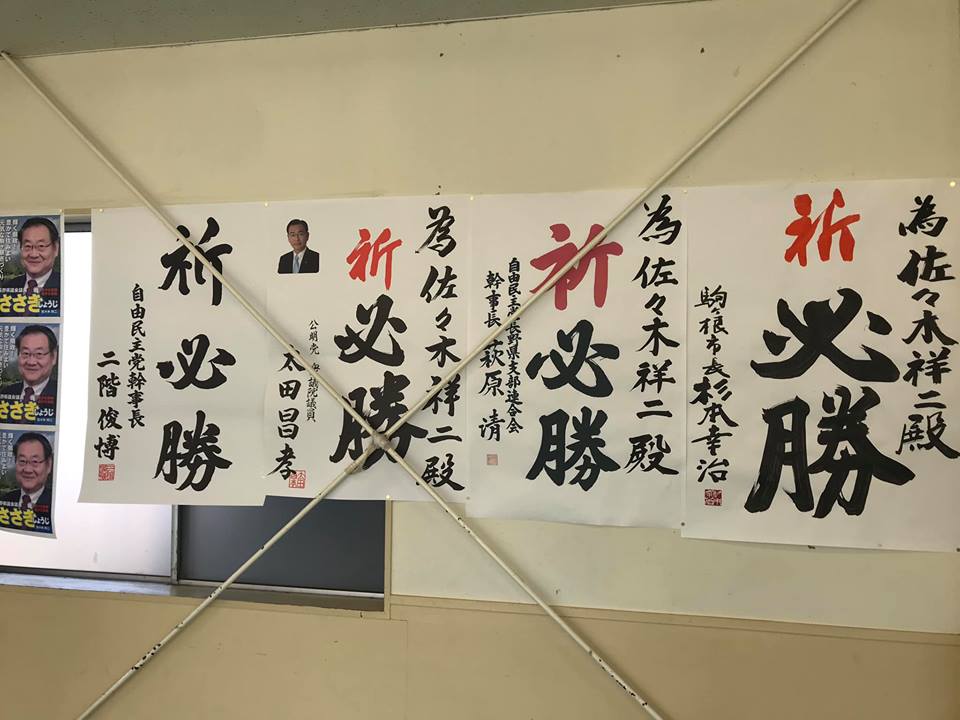 為佐々木祥二殿
祈必勝
駒ヶ根市長 杉本幸治
為佐々木祥二殿
祈必勝
自由民主党長野県支部連合会
幹事長 萩原清
為佐々木祥二殿
祈必勝
公明党 衆議院議員
太田昌孝
祈必勝
自由民主党幹事長
二階俊博
豊かで住みよい
ささきしょうじ
豊かで住みよい
ささきしょうじ
豊かで住みよい
ささきしょうじ